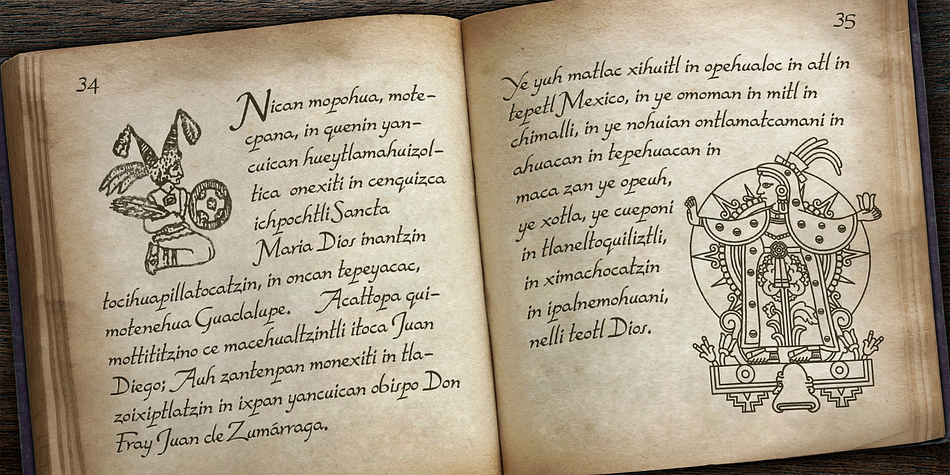 34
Nican mopohua, mote-
cpana, in quenin yan-
cuican hueytlamahuizol-
tica onexiti in cenquizca
ichpochtli Sancta
Maria Dios inantzin
tocihuapillatocatzin, in oncan tepeyacac,
motenehua Guadalupe. Acattopa qui-
mottititzino ce macehualtzintli itoca Juan
Diego; Auh zantenpan monexiti in tla-
zoixiptlatzin in ixpan yancuican obispo Don
Fray Juan de Zumárraga.
35
Ye yuh matlac xihuitl in opehualoc in atl in
tepetl Mexico, in ye omoman in mitl in
chimalli, in ye nohuian ontlamatcamani in
ahuacan in tepehuacan in
maca zan ye opeuh,
ye xotla, ye cueponi
in tlaneltoquiliztli,
in ximachocatzin
in ipalnemohuani,
nelli teotl Dios.